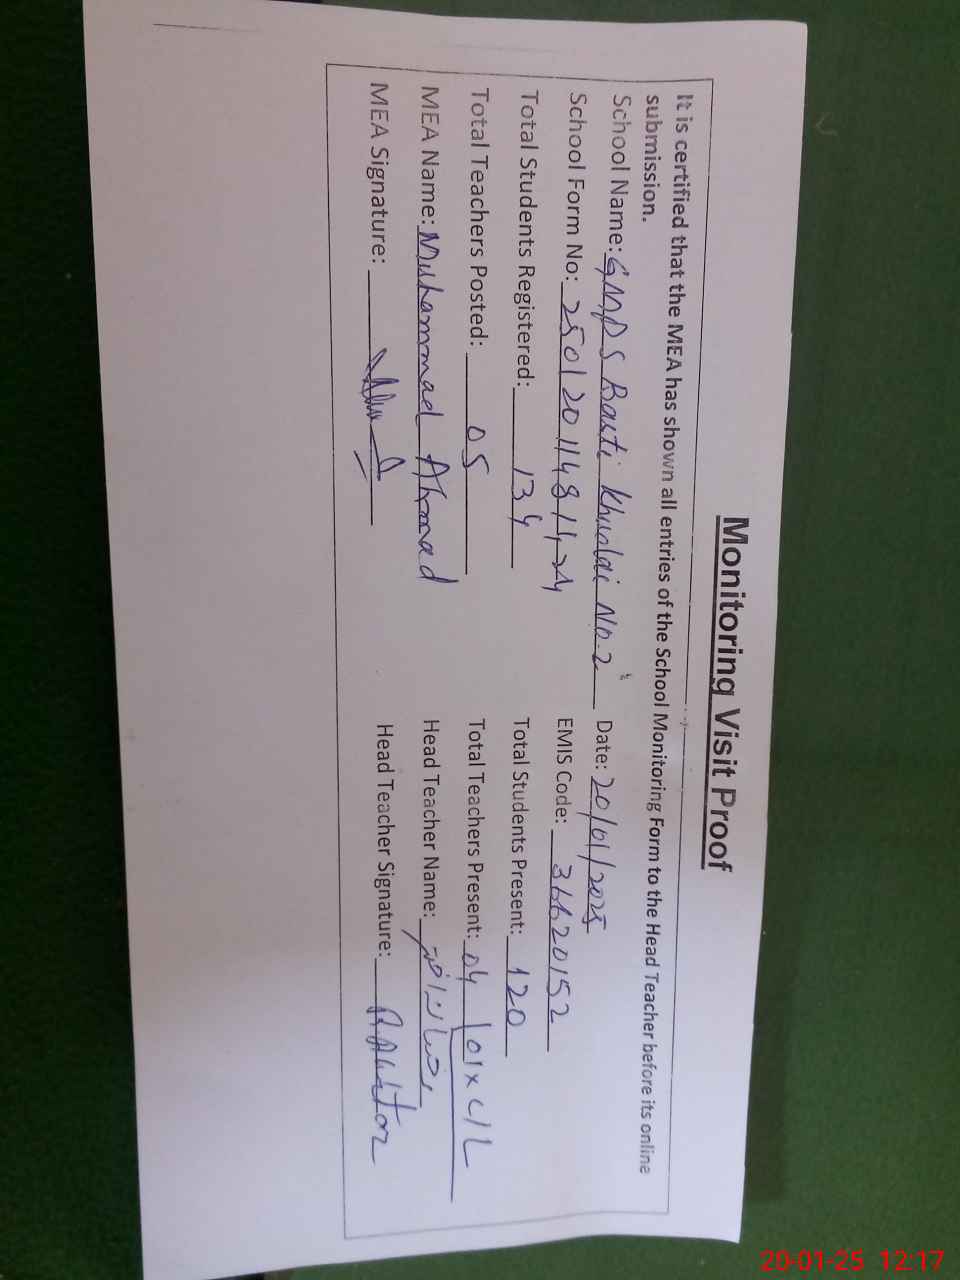 Monitoring Visit Proof
It is certified that the MEA has shown all entries of the School Monitoring Form to the Head Teacher before its online
submission.
School Name: GMPS Basti Khudai No.2 Date: 20/01/2025
School Form No: EMIS Code: 36620152
Total Students Registered: 134 Total Students Present: 120
Total Teachers Posted: 05 Total Teachers Present: 04 01x c/L
MEA Name: Muhammad Ahmad Head Teacher Name:
MEA Signature: Head Teacher Signature:
20-01-25 12:17